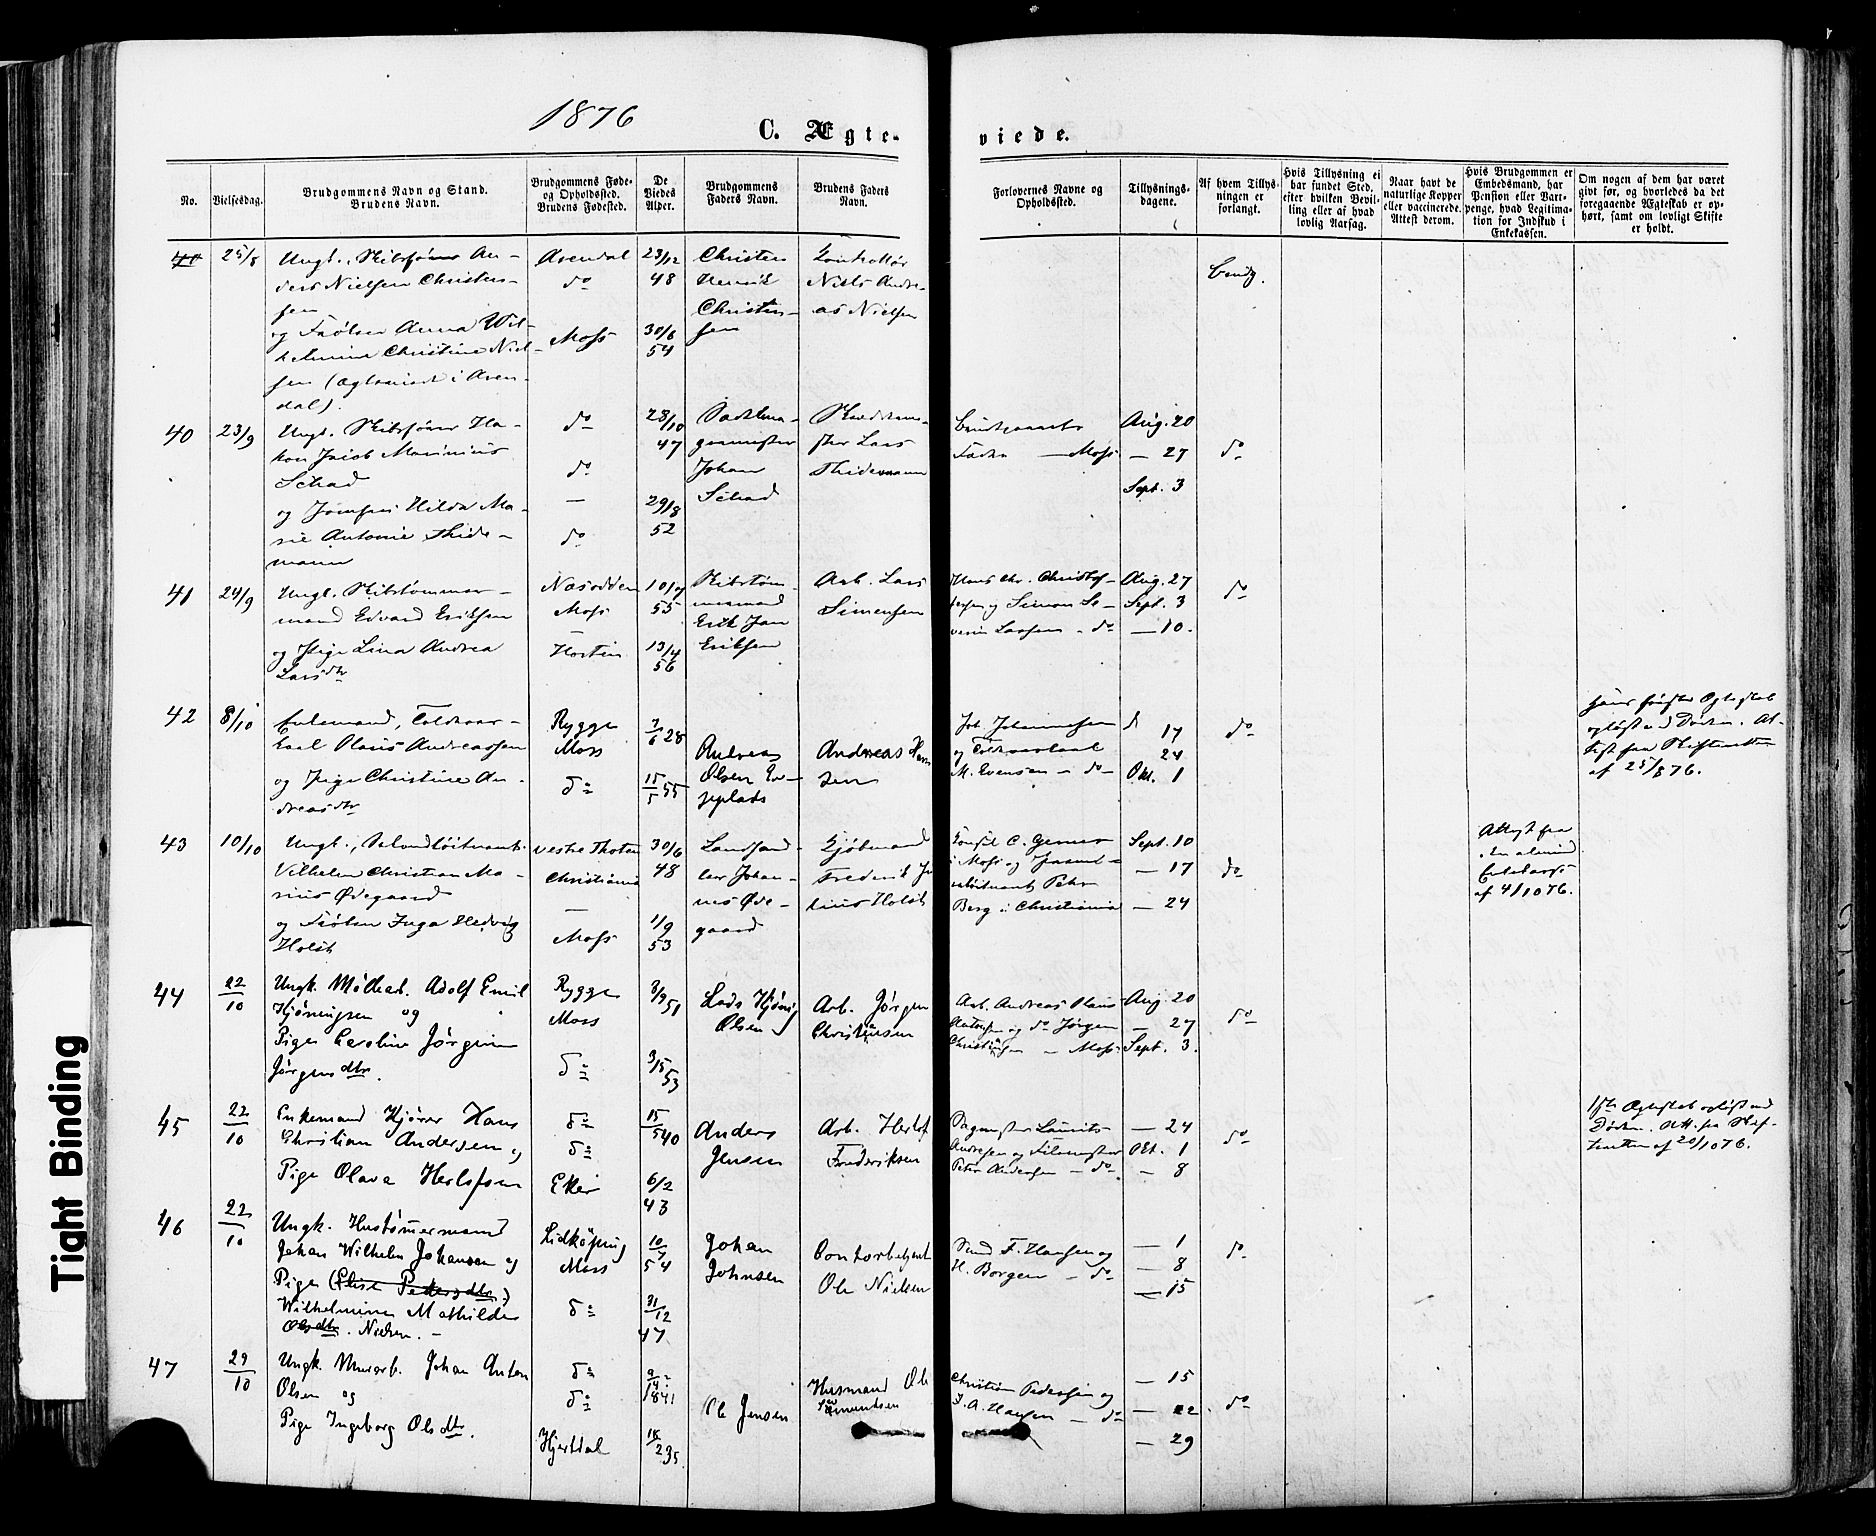 1876
C. Ægte-
viede.
No.
Vielsesdag.
Brudgommens Navn og Stand.
Brudens Navn.
Brudgommens Føde-
og Opholdssted.
Brudens Fødested.
De
Viedes
Alder.
Brudgommens
Faders Navn.
Brudens Faders
Navn.
Forlovernes Navne og
Opholdssted.
Tillysnings-
dagene.
Af hvem Tillys-
ningen er
forlangt.
Hvis Tillysning ei
har fundet Sted,
efter hvilken Bevil-
ling eller af hvad
lovlig Aarsag.
Naar havt de
naturlige Kopper
eller vaccinerede.
Attest derom.
Hvis Brudgommen er
Embedsmand, har
Pension eller Vart-
penge, hvad Legitima-
tion for Indskud i
Enkekassen.
Om nogen af dem har været
givt før, og hvorledes da det
foregaaende Ægteskab er op-
hørt, samt om lovligt Skifte
er holdt.
40 25/8
Ungk. Skibsfører An-
ders Nielsen Christen-
sen
og Frøken Anna Wil-
helmine Christine Niel-
sen (ægteviet i Aren-
dal).
Arendal
do
Moss
23/12
48
30/6
54
Christen
Henrik
Christen-
sen
Kontrollør
Niels Andre-
as Nielsen
40 23/9
Ungk. Skibsfører Ha-
kon Jacob Marinius
Schad
og Jomfru Hilda Ma-
rie Antonie Thide-
mann
do
do
—
do
28/10
47
29/8
52
Johan
Schad
Lars
Thidemann
Brudgommens
Fader — Moss
Aug. 20
— 27
Sept. 3
do
41 24/9
Ungk. Skibstømmer-
mand Edvard Eriksen
og Pige Lina Andrea
Larsdtr
Næsodden
Moss
Horten
10/7
55
13/4
56
Skibstøm-
mermand
Erik Jan
Eriksen
Arb. Lars
Simensen
Hans Chr. Christof-
fersen og Simon Se-
verin Larsen - do
Aug. 27
Sept. 3
— 10.
do
42 8/10
Enkemand, Toldkaar-
karl Olaus Andreassen
og Pige Christine An-
dreasdtr
Rygge
Moss
do
7/6 28
15/5 55
Andreas
Olsen Ep-
peplads
Andreas Han-
sen
Joh. Johannesen
M. Evensen - do -
17
24
Okt. 1
do
Hans første Ægteskab
opløst ved Døden. At-
test fra Skifteretten
af 25/8 76.
43 10/10
Ungk., Sekondløitnant
Vilhelm Christian Ma-
rius Ødegaard
og Frøken Inga Hedvig
Holst
vestre Thoten
Christiania
—
Moss
30/6
48
1/9
53
Landhand-
ler Johan-
nes Øde-
gaard
Kjøbmand
Frederik Ju-
lius Holst
Konsul C. Gerner
i Moss og Premier-
løitnant Peter
Berg i Christiania
Sept. 10
— 17
— 24
do
Attest fra
den almind
Enkekasse
af 4/10 76.
44 22/10
Ungk. Møllearb. Adolf Emil
Hjøningsen og
Pige Caroline Jørgine
Jørgensdtr.
Rygge
Moss
do
3/9 51
3/5 53
Lads Hjøning
Olsen
Arb. Jørgen
Christiansen
Arb. Andreas Olaus
og do Jørgen
Christiansen - Moss
Aug 20
— 27
Sept. 3.
do
45 22/10
Enkemand Kjører Hans
Christian Andersen og
Pige Olava Herlofsen
do
do
Eker
15/5 40
6/2
43
Anders
Jensen
Arb. Herlof
Frederiksen
Andresen og Filemester
Peter Andersen - do
— 24
Okt. 1
— 8
do
1ste Ægteskab opløst ved
Døden. Att. fra Skif-
teretten af 20/10 76.
46 22/10
Ungk. Hustømermand
Johan Wilhelm Johansen og
Pige (Elise Pedersdtr.)
Wilhelmine Mathilde
Olsdtr. Nielsen. -
Lidköping
Moss
do
10/7
54
31/12
47
Johan
Johnsen
Contorbetjent
Ole Nielsen
F. Hansen og
H. Borgen - do
— 1
— 8
— 15
do
47 29/10
Ungk. Murarb. Johan Anton
Olsen og
Pige Ingeborg Olsdtr.
do
do
Hjertdal
1841
15/2 35
Ole Jensen
Husmand Ole
Christian Pedersen og
J. A. Hansen - do
— 15
— 22
— 29
do
Tight Binding